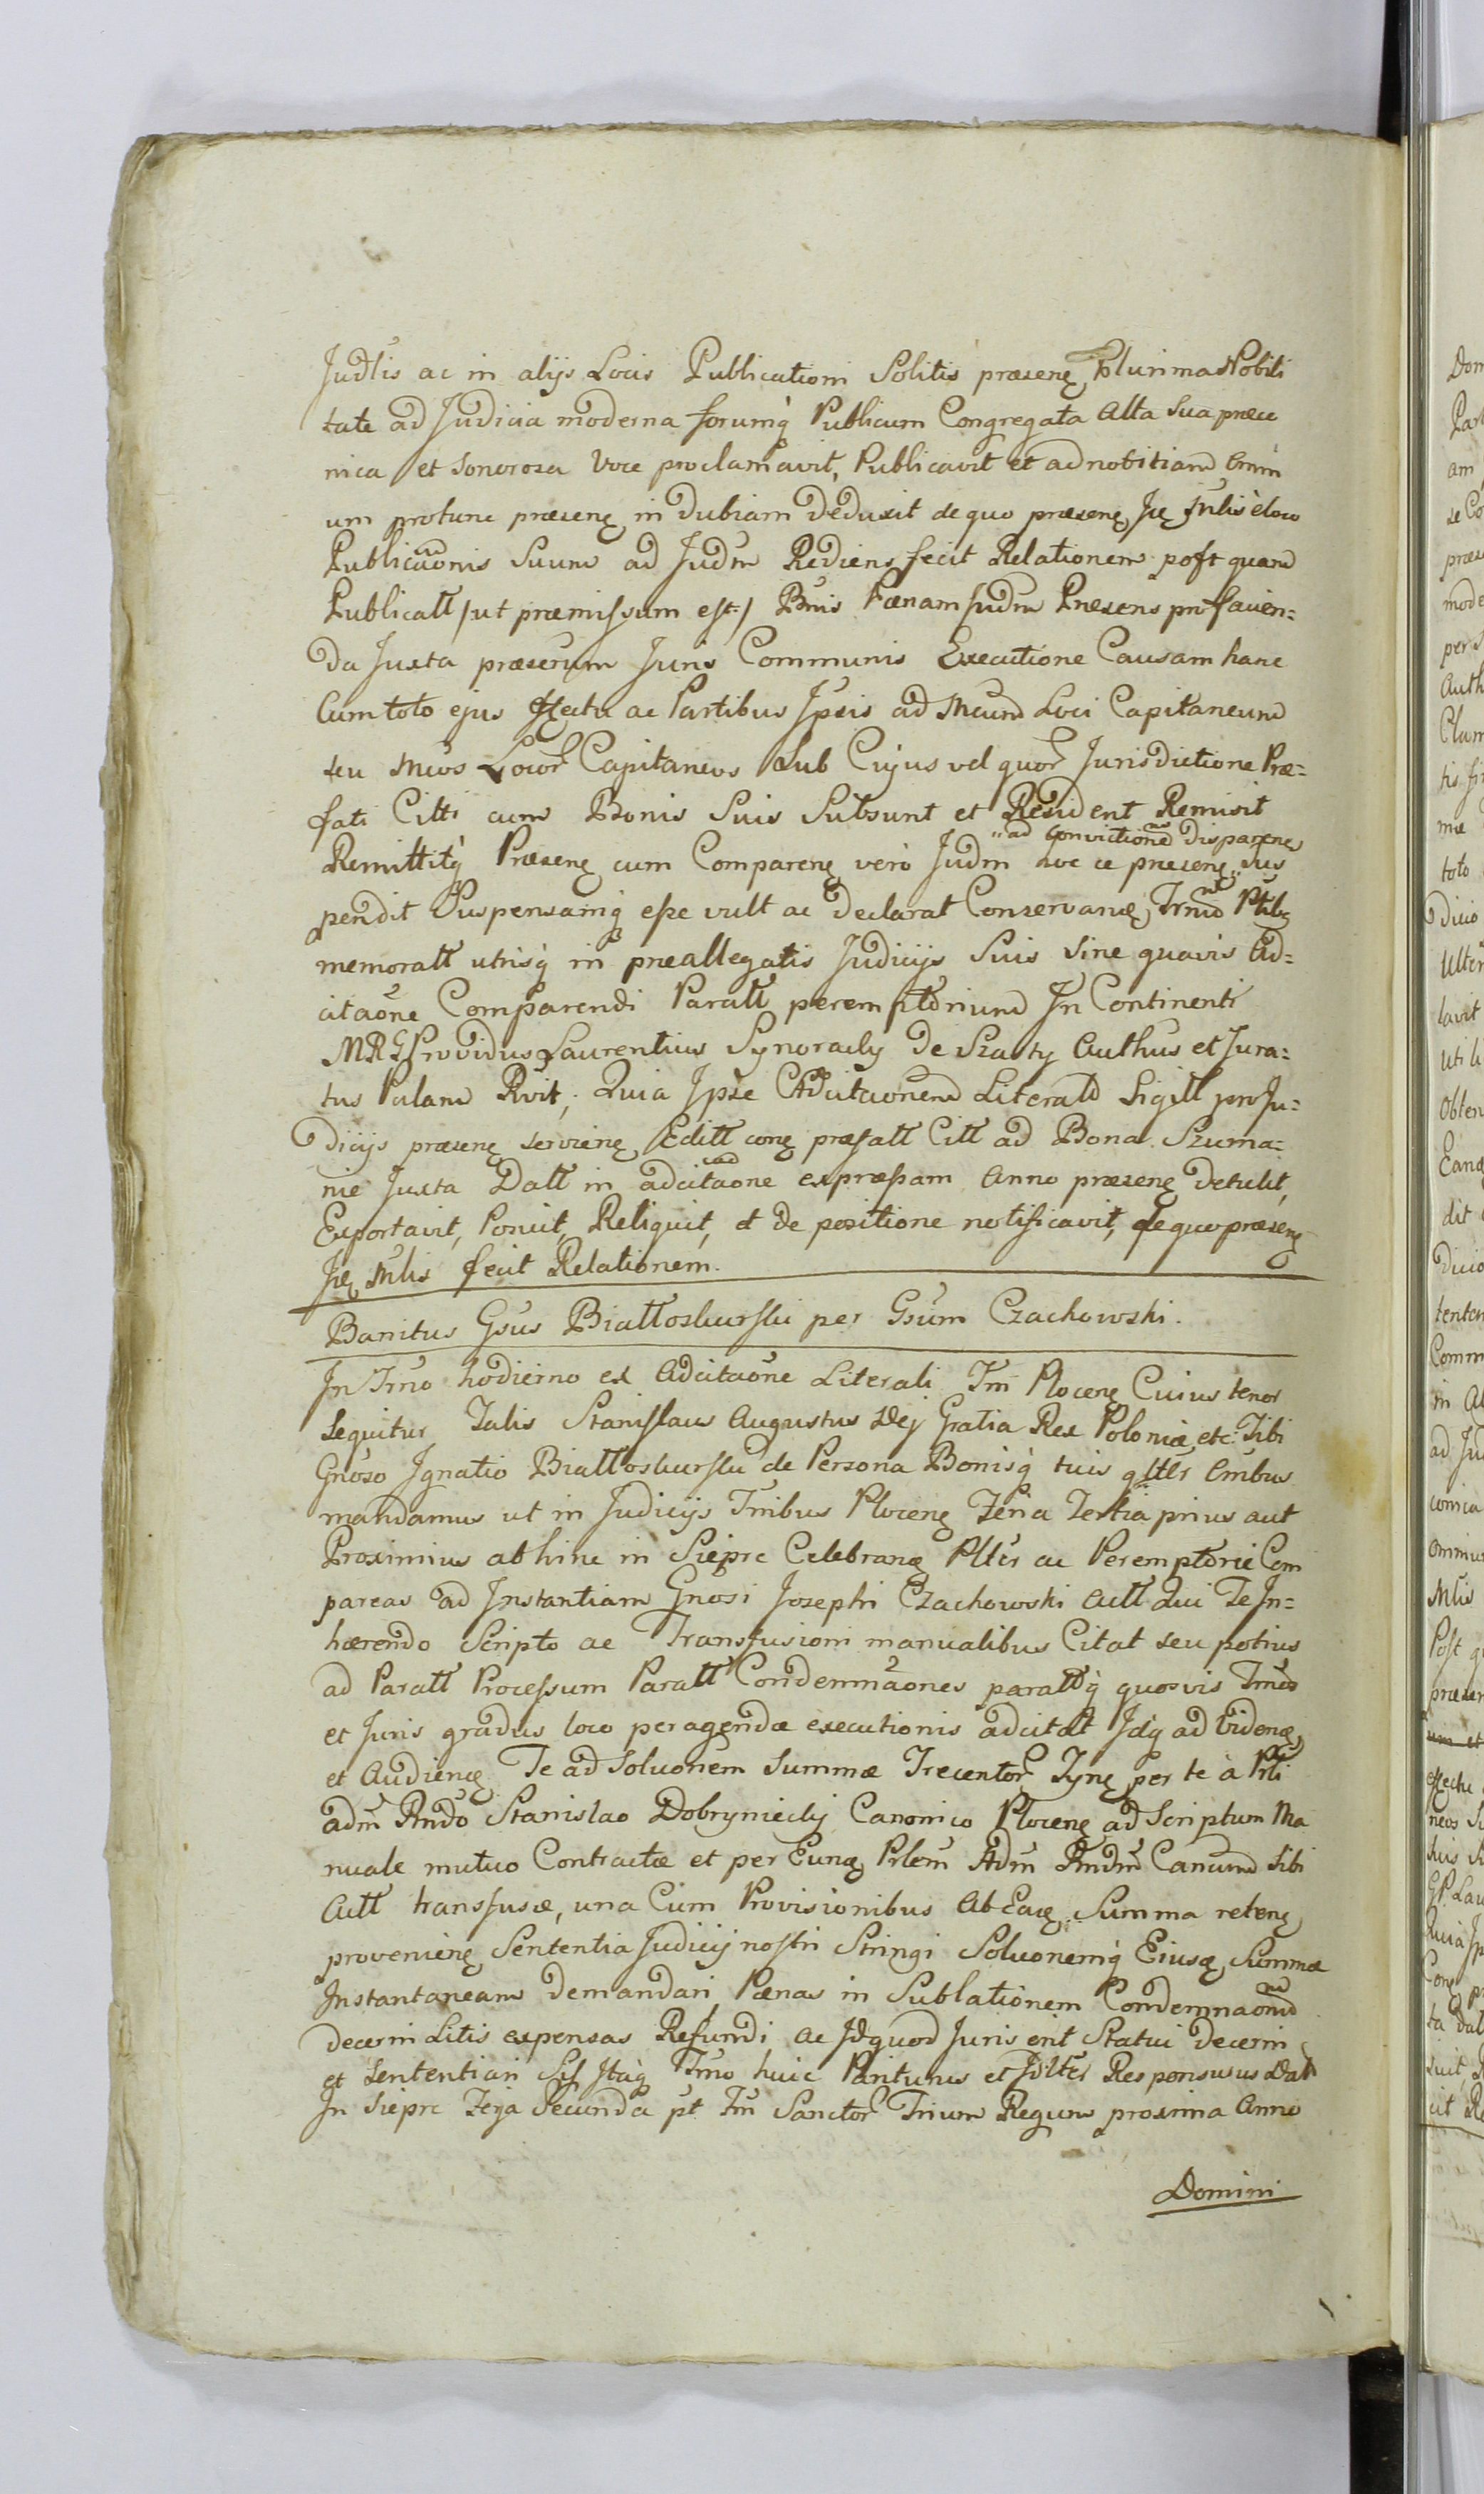 Judlis ac in alijs Locis Publicationi Solitis præsenę Plurima Nobili
tate ad Judicia moderna forumq̀ Publicum Congregata Alta Sua præco
nica et sonorosa Voce proclamavit, Publicavit et ad notitiam Omni
um protunc præsenę in Dubiam Deduxit de quo præsenę Jię Mlis è loco
Publicaõnis Suum ad Judm Rediens fecit Relationem post quam
Publicatt /ut præmissum est:/ Bnis Pænam Judm Præsens pro facien=
da Juxta præserum Juris Communis Executione Causam hanc
Cum toto ejus effectu ac Partibus Ipsis ad Mcum Loci Capitaneum
seu Mcos Locor Capitaneos Sub Cujus vel quor Jurisdictione Præ=
fati Citti cum Bonis Suis Subsunt et Resident Remisit
Remittitq̀ Præsenę cum Comparenę verò Judm hoc ce præsenę "sus
"ad Convictionem Disparenę
pendit Suspensamq̀ esse vult ac Declarat Conservanę, Trmo Ptibę
memoratt utrisq̀ in præallegatis Judicijs Suis Sine quavis Ad=
citaõne Comparendi Paratt peremptorium In Continenti
MRG Providus Laurentius Synoracky De Szasty Authus et Jura=
tus Palam Rvit; Quia Ipse Adcitaonem Literalem Sigitt pro Ju=
dicijs præsenę serviene Editt conę præfatt Citt ad Bona Szuma=
nie Juxta Datt in adcitaone expressam Anno præsenę Detulit,
Exportavit, Posuit, Reliquit, et de positione notificavit, de quo præsenę
Jię Mlis fecit Relationem.
Banitus Gsus Biattoskurski per Gsum Czachowski.
In Trno hodierno ex Adcitaõne Literali Tm Plocenę Cuius tenor
Sequitur Talis Stanislaus Augustus Dej Gratia Rex Poloniæ etc: Tibi
Gnoso Ignatio Biattoskurski de Persona Bonisq̀ tuis gltěr Omibus
mandamus ut in Judicijs Tmibus Plocenę Feria Tertia prius aut
Proximius abhinc in Sieprc Celebranę Pltěr ac Peremptorie Com
pareas ad Instantiam Gnosi Josephi Czachowski Actt Qui Te In=
hærendo Scripto ac Transfusioni manualibus Citat seu potius
ad Paratt Processum Paratt Condemnaones parattq̀ quosvis Trnos
et Juris gradus loco peragendæ executionis adcitat Idq̀ ad Videnę,
et Audienę Te ad Soluonem Summæ Trecentor Tynę per te à Prli
adm Rndo Stanislao Dobrzyniecky Canonico Plocenę ad Scriptum Ma
nuale mutuo Contractæ et per Eunę Prlem Adm Rndm Canum Sibi
Actt transfusæ, una Cum Provisionibus Ab Eaę Summa retenę
provenienę Sententia Judicij nostri Stringi Soluonemq̀ Eiusę Summæ
Instantaneam Demandari, Pænas in Sublationem Condemnaonum
decerni Litis expensas Refundi ac Id quod Juris erit Statui Decerni
et Sententiari Sis Itaq̀ Trmo huic Pariturus et Jdltěr Responsurus Dat
In Sieprc Feria Secunda pt Tm Sanctor Trium Regum proxima Anno
Domini